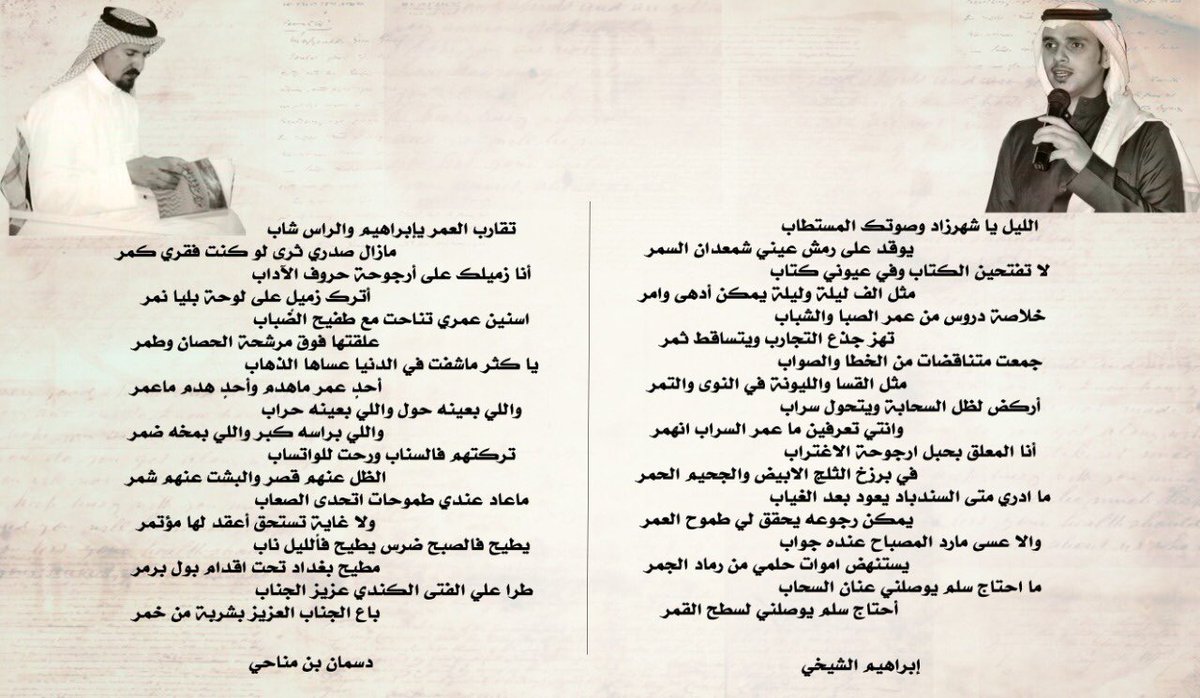 الليل يا شهرزاد وصوتك المستطاب
يوقد على رمش عيني شمعدان السمر
لا تفتحين الكتاب وفي عيوني كتاب
مثل الف ليلة وليلة يمكن أدهى وامر
خلاصة دروس من عمر الصبا والشباب
تهز جذع التجارب ويتساقط ثمر
جمعت متناقضات من الخطا والصواب
مثل القسا والليونة في النوى والتمر
أركض لظل السحابة ويتحول سراب
وانتي تعرفين ما عمر السراب انهمر
أنا المعلق بحبل ارجوحة الاغتراب
في برزخ الثلج الابيض والجحيم الحمر
ما ادري متى السندباد يعود بعد الغياب
يمكن رجوعه يحقق لي طموح العمر
والا عسى مارد المصباح عنده جواب
يستنهض اموات حلمي من رماد الجمر
ما احتاج سلم يوصلني عنان السحاب
أحتاج سلم يوصلني لسطح القمر
إبراهيم الشيخي
تقارب العمر يإبراهيم والراس شاب
مازال صدري ثرى لو كنت فقري كمر
أنا زميلك على أرجوحة حروف الآداب
أترك زميلٍ على لوحة بليا نمر
اسنين عمري تناحت مع طفيح الضّباب
علقتها فوق مرشحة الحصان وطمر
يا كثر ماشفت في الدنيا عساها الذهاب
أحدٍ عمر ماهدم وأحدٍ هدم ماعمر
واللي بعينه حول واللي بعينه حراب
واللي براسه كبر واللي بمخه ضمر
تركتهم فالسناب ورحت للواتساب
الظل عنهم قصر والبشت عنهم شمر
ماعاد عندي طموحات اتحدى الصعاب
ولا غاية تستحق أعقد لها مؤتمر
يطيح فالصبح ضرس يطيح فألليل ناب
مطيح بغداد تحت اقدام بول برمر
طرا علي الفتى الكندي عزيز الجناب
باع الجناب العزيز بشربة من خمر
دسمان بن مناحي